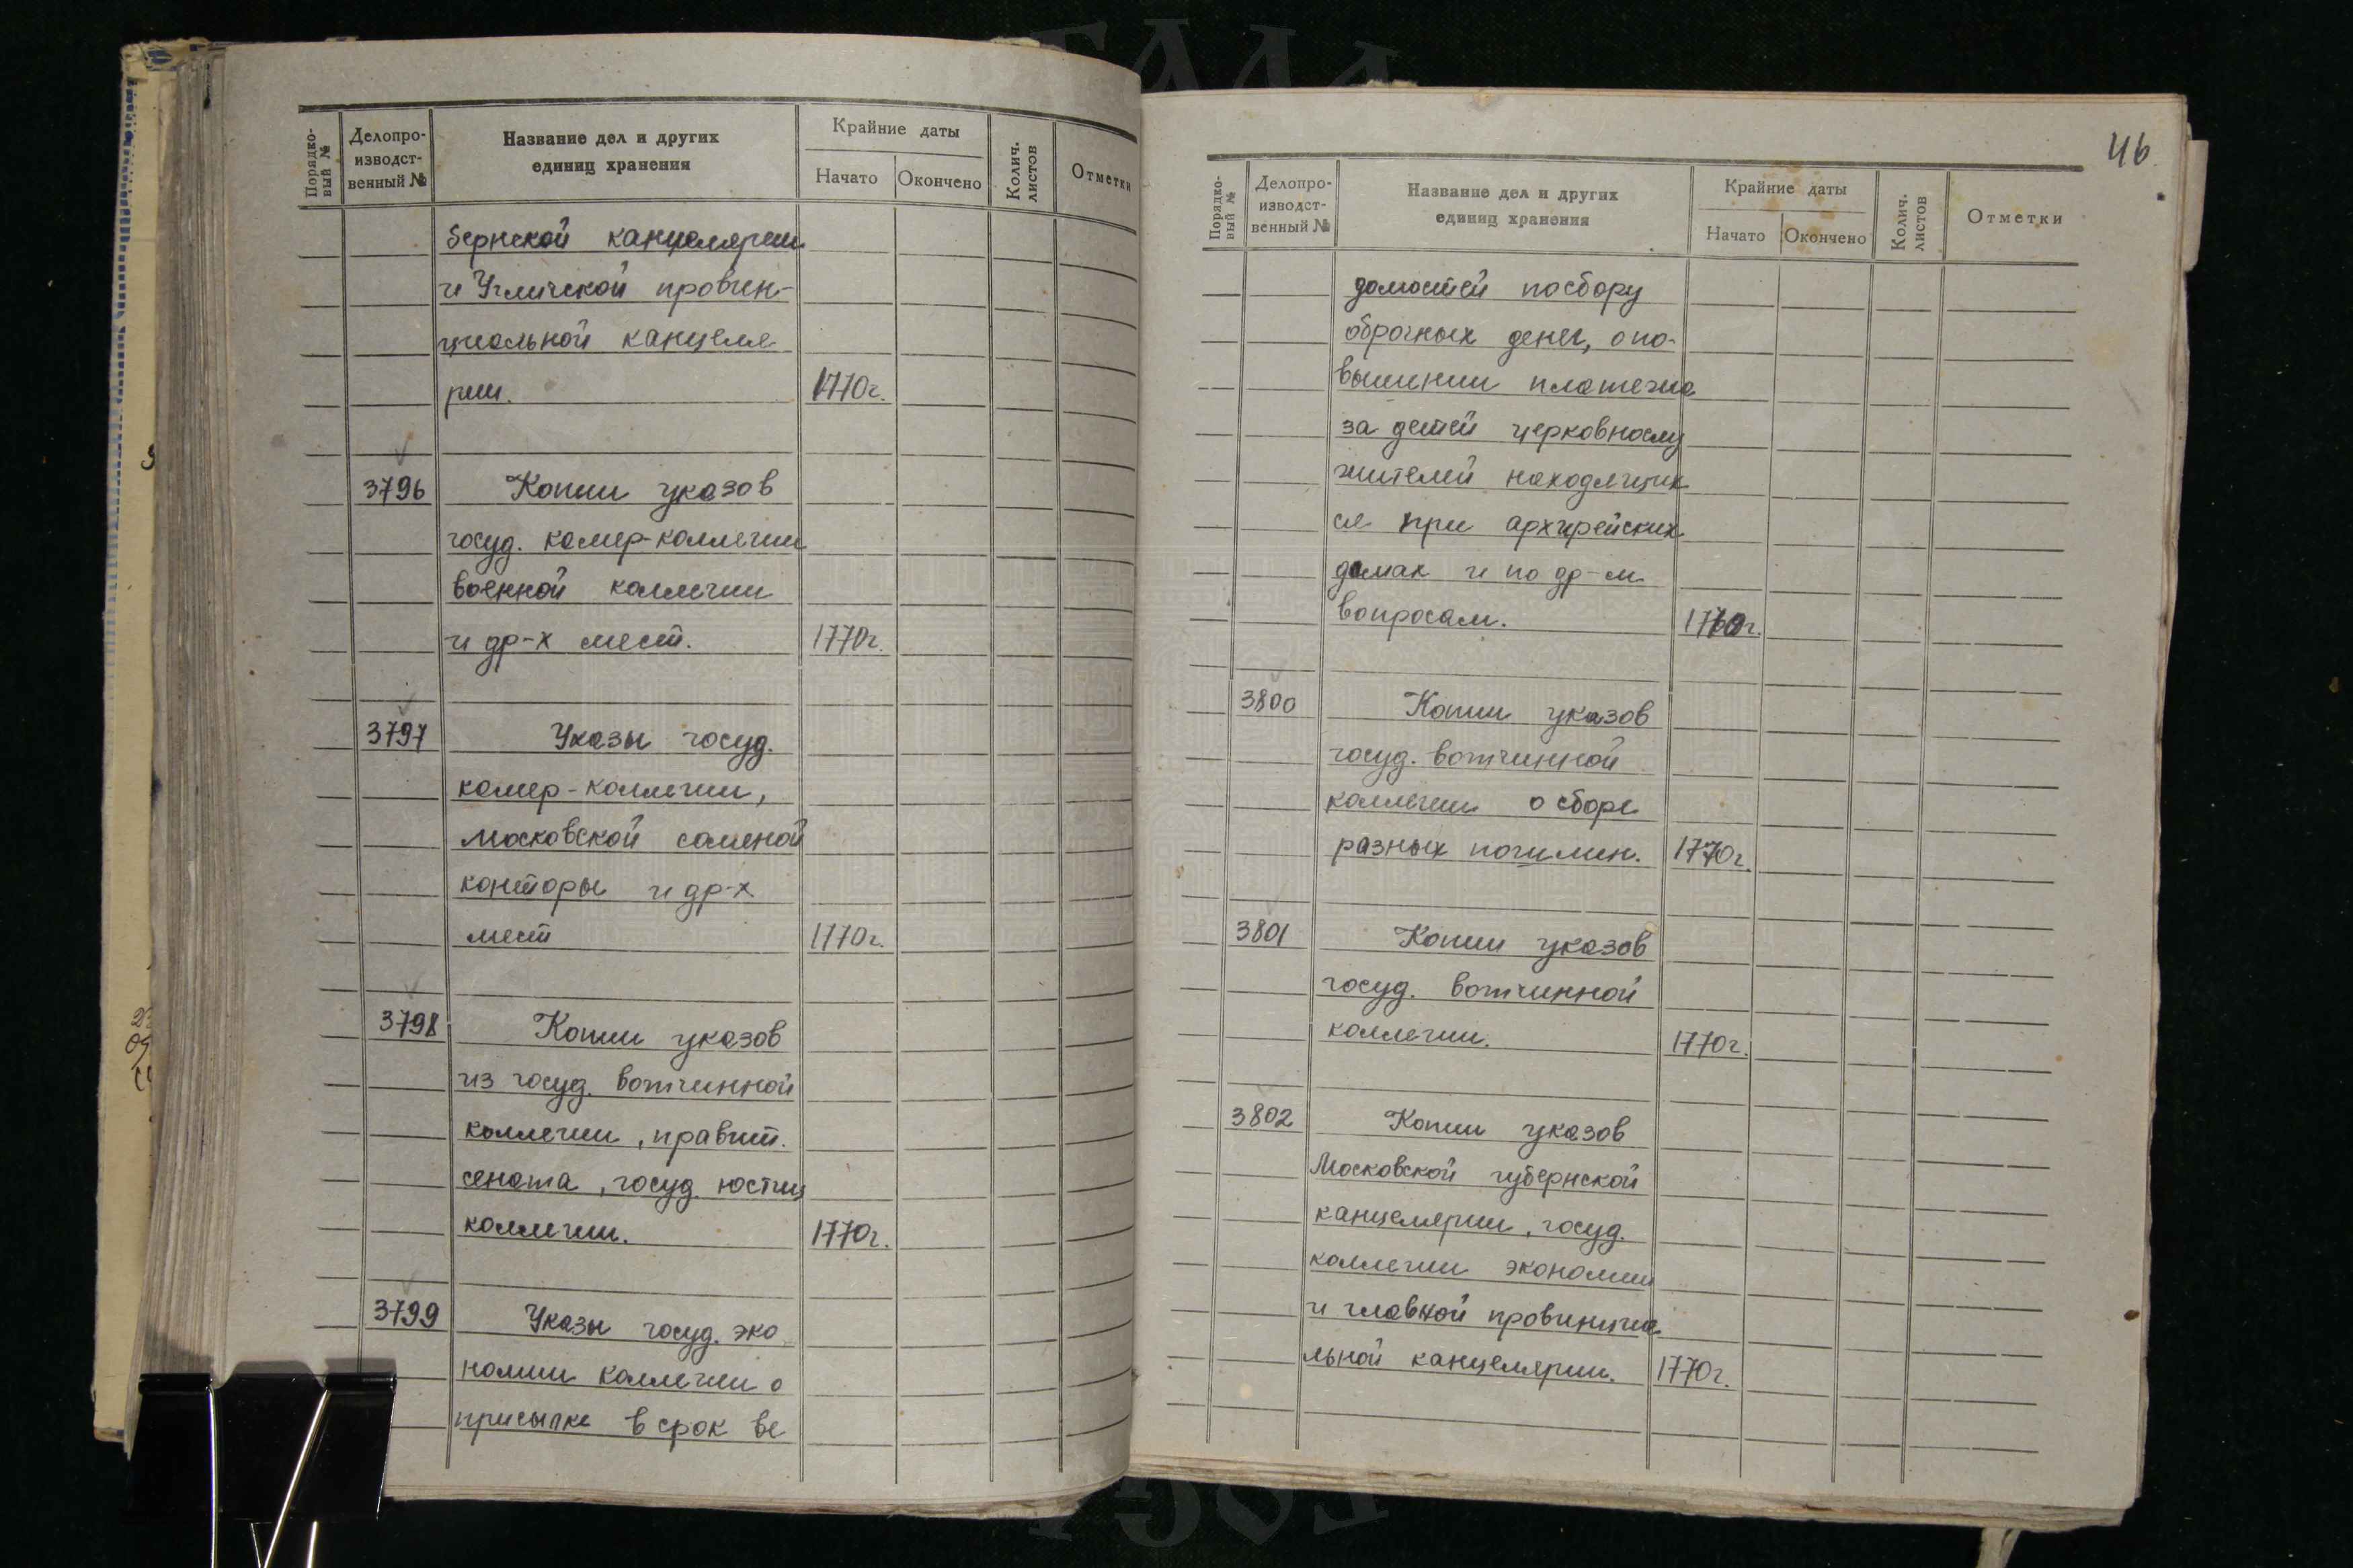 Порядко-
вый №
Делопро-
изводст-
венный №
Название дел и других
единиц хранения
Крайние даты
Начато
Окончено
Колич.
листов
Отметки
бернской канцелярии
и Угличской провин-
циальной канцеля
рии. 1770г.
3796 Копии указов
госуд. камер-коллегии
военной коллегии
и др-х мест. 1770г.
3797 Указы госуд.
камер-коллегии,
московской соляной
конторы и др-х
мест 1770г.
3798 Копии указов
из госуд. вотчинной
коллегии, правит.
сената, госуд. юстиц
коллегии. 1770г.
3799 Указы госуд. эко
номии коллегии о
присылке в срок ве
46
Порядко-
вый №
Делопро-
изводст-
венный №
Название дел и других
единиц хранения
Крайние даты
Начато
Окончено
Колич.
листов
Отметки
домостей по сбору
оброчных денег, о по-
вышении платежа
за детей церковнослу
жителей находящих
ся при архирейских
домах и по др-м
вопросам.
3800 Копии указов
госуд. вотчинной
коллегии о сборе
разных пошлин. 1770г.
3801 Копии указов
госуд. вотчинной
коллегии. 1770г.
3802 Копии указов
Московской губернской
канцелярии, госуд.
коллегии экономии
и главной провинциа
льной канцелярии. 1770г.